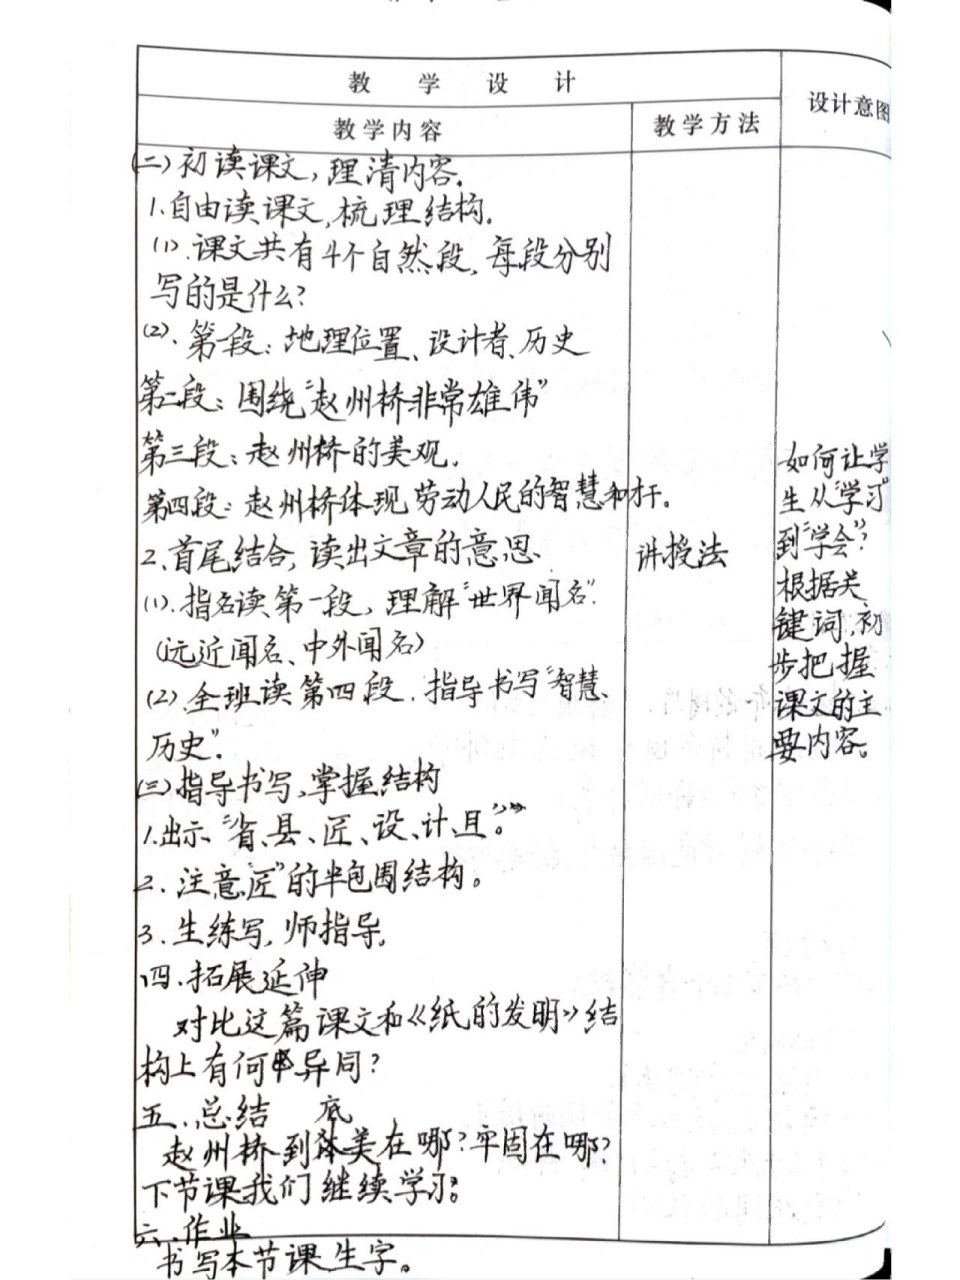 教 学 设 计
设计意图
教学内容
教学方法
(二)初读课文,理清内容。
1.自由读课文,梳理结构。
(1).课文共有4个自然段,每段分别
写的是什么?
(2)、第一段:地理位置、设计者、历史
第二段:围绕“赵州桥非常雄伟”
第三段:赵州桥的美观。
第四段:赵州桥体现劳动人民的智慧和才干。
2、首尾结合,读出文章的意思、
(1).指名读第一段,理解“世界闻名”.
(远近闻名、中外闻名)
(2).全班读第四段.指导书写“智慧、
历史”.
(三)指导书写,掌握结构
1.出示“省、县、匠、设、计、且。”
2.注意“匠”的半包围结构。
3.生练写,师指导,
四.拓展延伸
对比这篇课文和《纸的发明》结
构上有何异同?
五.总结
赵州桥到底美在哪?牢固在哪?
下节课我们继续学习。
六.作业
书写本节课生字。
讲授法
如何让学
生从“学习”
到“学会”?
根据关
键词,初
步把握
课文的主
要内容。